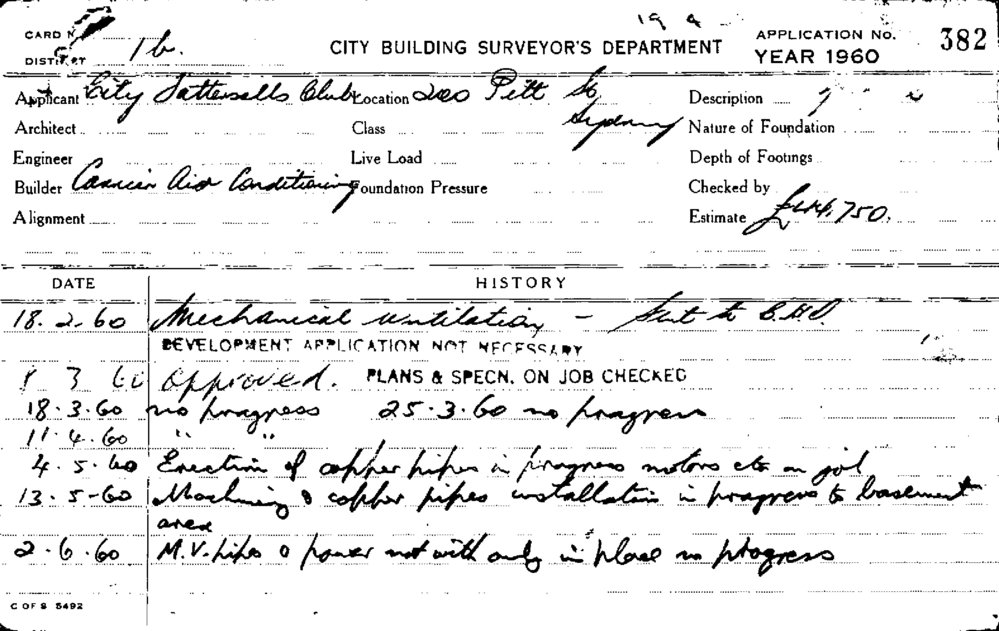 CARD No.
DISTRICT 1b.
CITY BUILDING SURVEYOR'S DEPARTMENT
APPLICATION No. 382
YEAR 1960
Applicant City Tattersalls Club Location 200 Pitt St Sydney Description
Architect Class Nature of Foundation
Engineer Live Load Depth of Footings
Builder Carrier Air Conditioning Foundation Pressure Checked by
Alignment Estimate
DATE HISTORY
18.2.60 Mechanical ventilation - Sent to
DEVELOPMENT APPLICATION NOT NECESSARY
3 60 Approved. PLANS & SPECN. ON JOB CHECKED
18.3.60 no progress 25.3.60 no progress
11.4.60 " "
4.5.60 Erection of copper pipes in progress motors etc on job
13.5-60 Machinery & copper pipes installation in progress to basement
area
2.6.60 M.V. pipes & only in place no progress
C OF S 5492